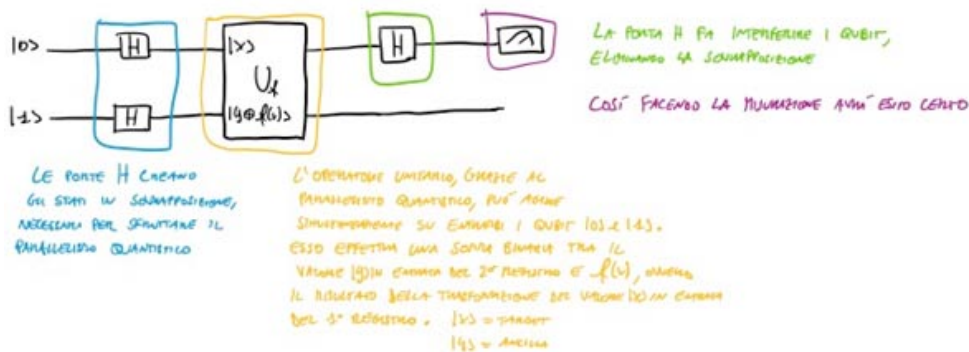 |0> H |x> H
U_f
|1> H |y⊕f(x)>
LA PORTA H FA INTERFERIRE I QUBIT,
ELIMINANDO LA SOVRAPPOSIZIONE
COSÍ FACENDO LA MISURAZIONE AVRÁ ESITO CERTO
LE PORTE H CREANO
GLI STATI IN SOVRAPPOSIZIONE,
NECESSARI PER SFRUTTARE IL
PARALLELISMO QUANTISTICO
L'OPERATORE UNITARIO, GRAZIE AL
PARALLELISMO QUANTISTICO, PUÓ AGIRE
SIMULTANEAMENTE SU ENTRAMBI I QUBIT |0> E |1>.
ESSO EFFETTUA UNA SOMMA BINARIA TRA IL
VALORE |y> IN ENTRATA DEL 2° REGISTRO E f(x), OVVERO
IL RISULTATO DELLA TRASFORMAZIONE DEL VALORE |x> IN ENTRATA
DEL 1° REGISTRO. |x> = TARGET
|y> = ANCILLA